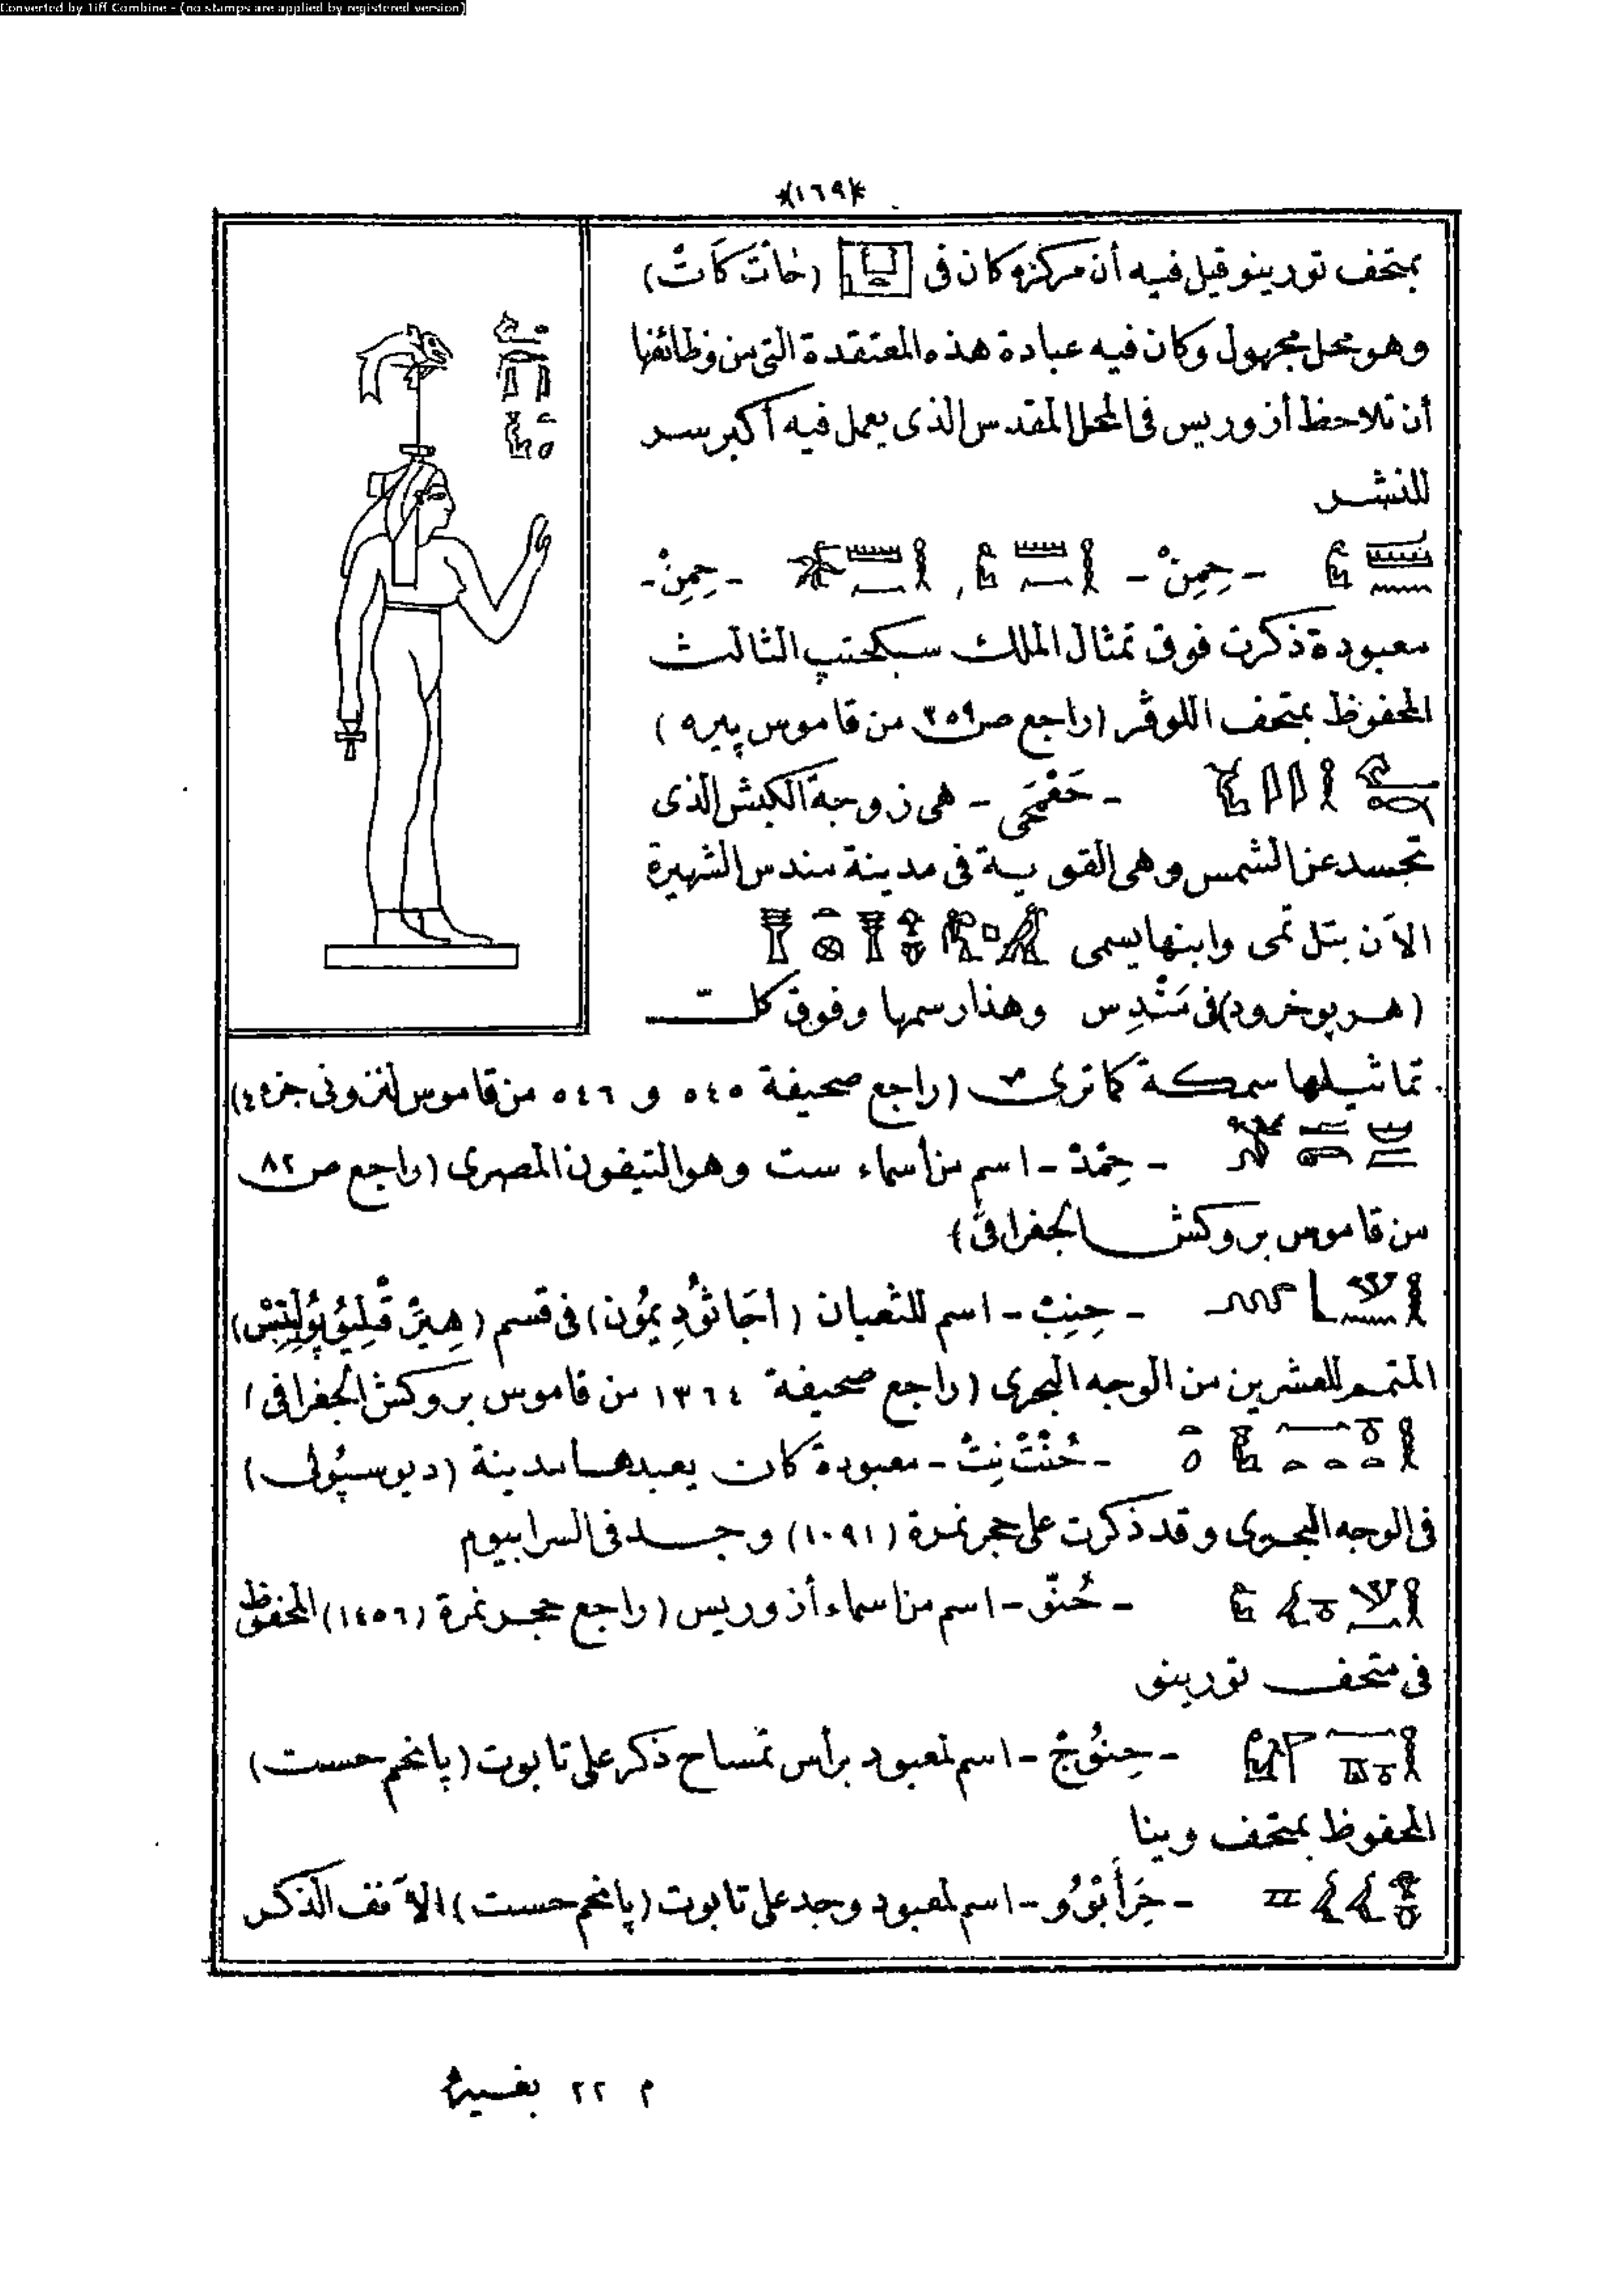 Converted by Tiff Combine - (no stamps are applied by registered version)
*(١٦٩)*
بمتحف تورينو قيل فيه أن مركزه كان فى (خات كات)
وهو محل مجهول وكان فيه عبادة هذه المعتقدة التى من وظائفها
أن تلاحظ أزوريس فى المحل المقدس الذى يعمل فيه أكبر سر
للنشر
- حِمِنْ - - حِمِنْ -
معبودة ذكرت فوق تمثال الملك سبكحتب الثالث
المحفوظ بمتحف اللوڤر (راجع ص ٣٥٩ من قاموس پيره)
- حَعْمَحى - هى زوجة الكبش الذى
تجسد عن الشمس وهى القوية فى مدينة مندس الشهيرة
الآن بتل تمى وابنها يسمى
(هر پوخرود) فى مَنْدِس وهذا رسمها وفوق كل
تماثيلها سمكة كما ترى (راجع صحيفة ٥٤٥ و ٥٤٦ من قاموس لنزونى جزء ٤)
- حِمْذ - اسم من أسماء ست وهو التيفون المصرى (راجع ص ٨٢
من قاموس بروكش الجغرافى)
- حِنِبْ - اسم للثعبان (اجَاثُودِيمُون) فى قسم (هِيرْقْلِيُوپُولِيتِسْ)
المتمم للعشرين من الوجه البحرى (راجع صحيفة ١٣٦٤ من قاموس بروكش الجغرافى)
- حُنْتْ نِتْ - معبودة كان يعبدها مدينة (ديوسپولى)
فى الوجه البحرى وقد ذكرت على حجر نمرة (١٠٩١) وجد فى السرابيوم
- حُنّو - اسم من اسماء أزوريس (راجع حجر نمرة (١٤٥٦) المحفوظ
فى متحف تورينو
- حِنُوج - اسم لمعبود برأس تمساح ذكر على تابوت (پانحم حست)
المحفوظ بمتحف وينا
- حَرأبوُو - اسم لمعبود وجد على تابوت (پانحم حست) الآنف الذكر
م ٢٢